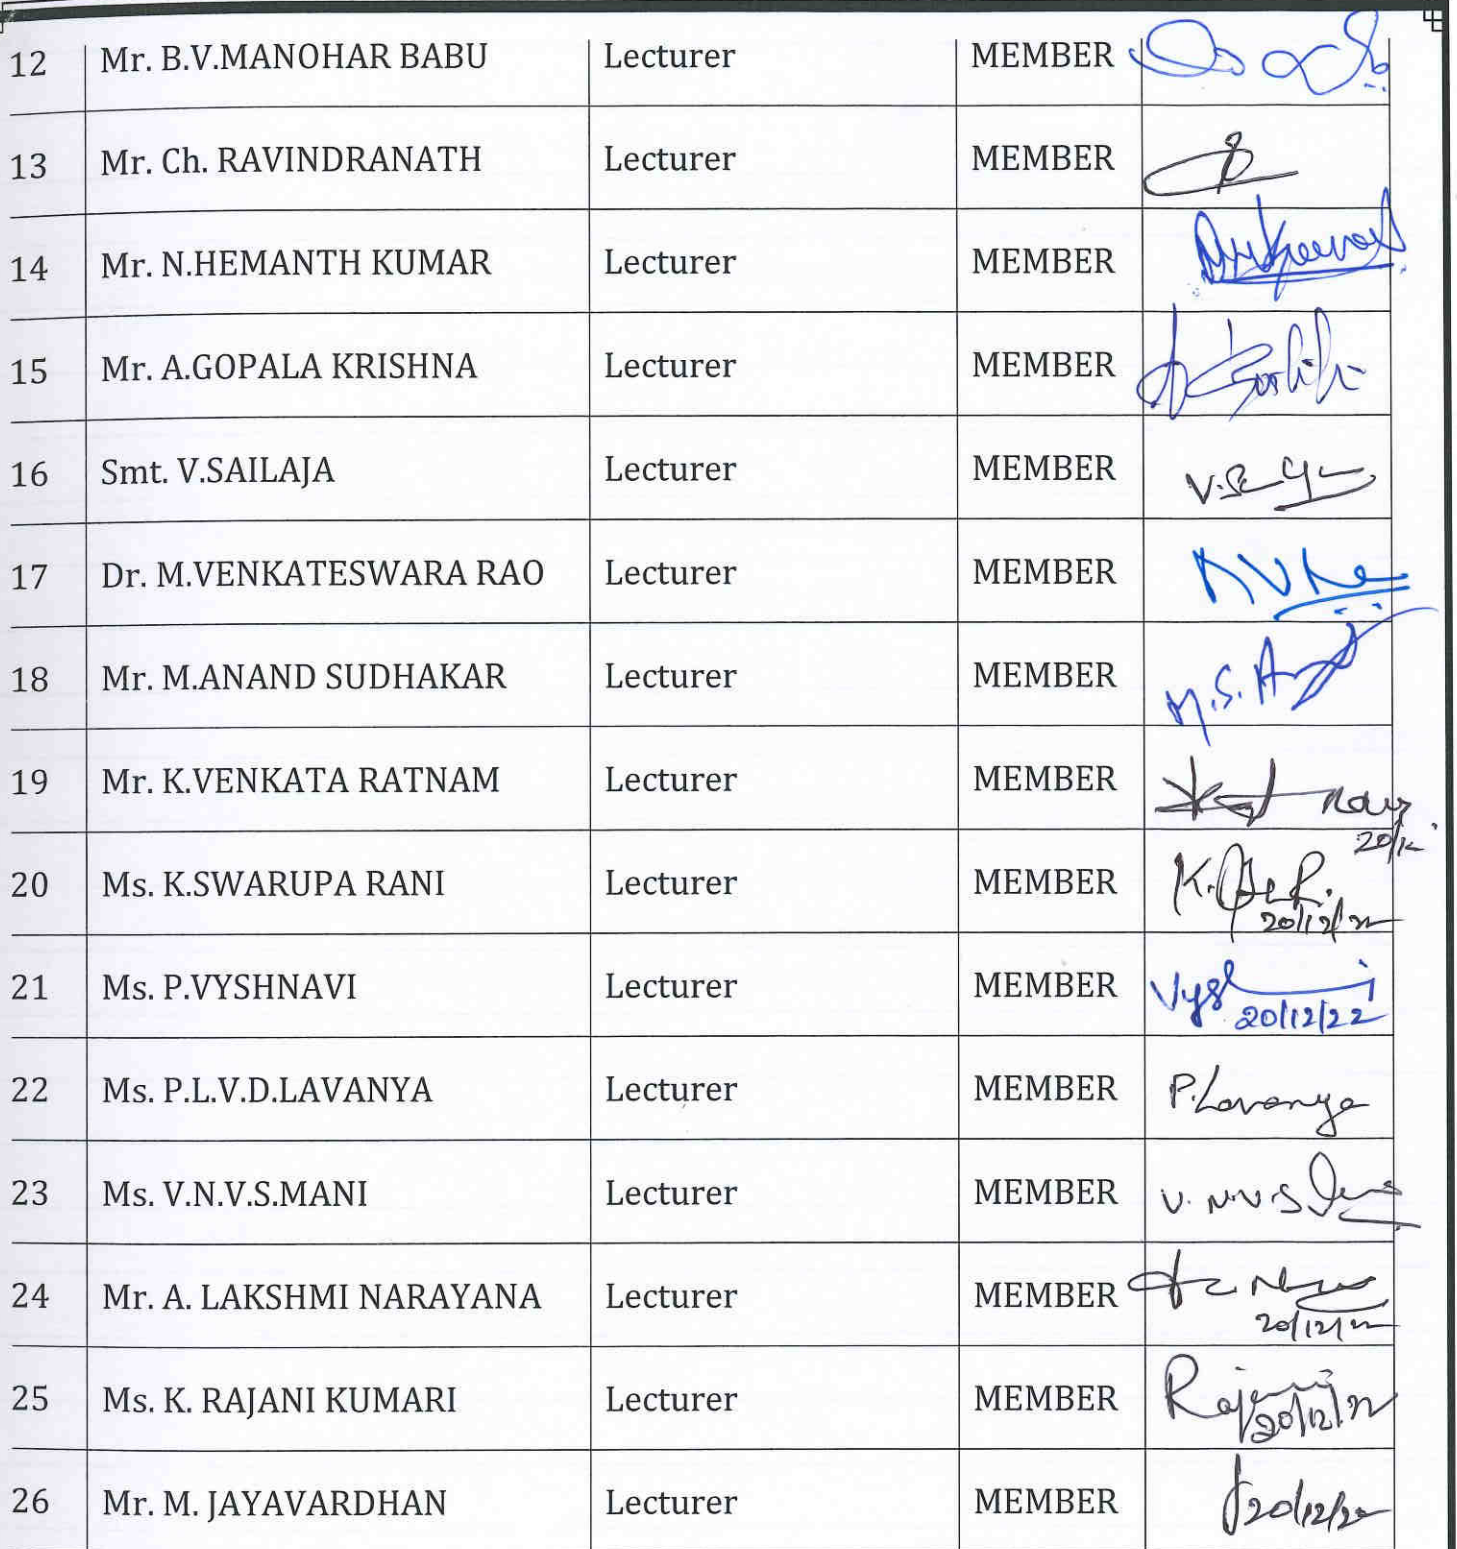 12 Mr. B.V.MANOHAR BABU Lecturer MEMBER
13 Mr. Ch. RAVINDRANATH Lecturer MEMBER
14 Mr. N.HEMANTH KUMAR Lecturer MEMBER
15 Mr. A.GOPALA KRISHNA Lecturer MEMBER
16 Smt. V.SAILAJA Lecturer MEMBER
17 Dr. M.VENKATESWARA RAO Lecturer MEMBER
18 Mr. M.ANAND SUDHAKAR Lecturer MEMBER
19 Mr. K.VENKATA RATNAM Lecturer MEMBER
20 Ms. K.SWARUPA RANI Lecturer MEMBER
20/12/22
21 Ms. P.VYSHNAVI Lecturer MEMBER
20/12/22
22 Ms. P.L.V.D.LAVANYA Lecturer MEMBER P.Lavanya
23 Ms. V.N.V.S.MANI Lecturer MEMBER V.N.V.S
24 Mr. A. LAKSHMI NARAYANA Lecturer MEMBER
20/12/22
25 Ms. K. RAJANI KUMARI Lecturer MEMBER Rajani
20/12/22
26 Mr. M. JAYAVARDHAN Lecturer MEMBER 20/12/22